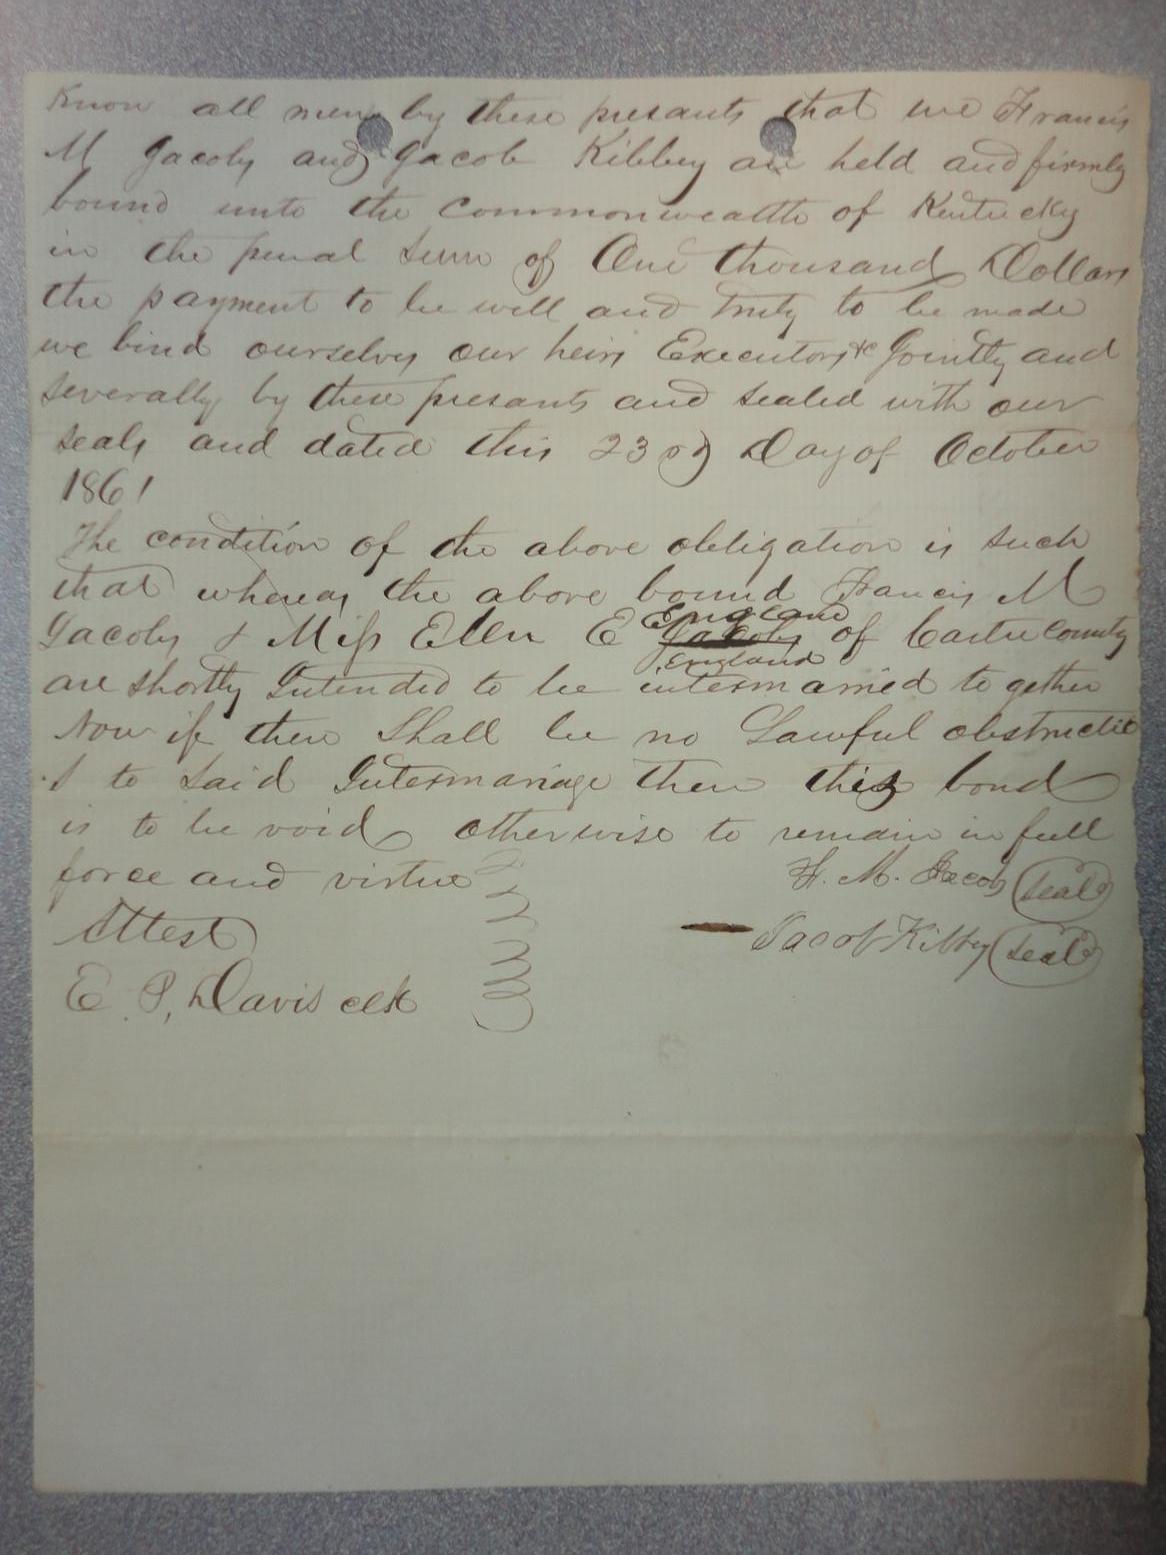 Know all men by these presants that we Francis
M Jacoby and Jacob Kibbey are held and firmly
bound unto the Commonwealth of Kentucky
in the penal sum of One thousand Dollars
the payment to be well and truly to be made
we bind ourselves our heirs Executors &c Jointly and
severally by these presants and sealed with our
seals and dated this 23rd Day of October
1861
The condition of the above obligation is such
that whereas the above bound Francis M
England
Jacoby & Miss Ellen E Jacoby of Carter County
England
are shortly Intended to be intermarried together
Now if there Shall be no Lawful obstructio
to Said Intermariage then this bond
is to be void otherwise to remain in full
force and virtue
F. M. Jacoby (seal)
Attest
Jacob Kibby (seal)
E. P. Davis clk